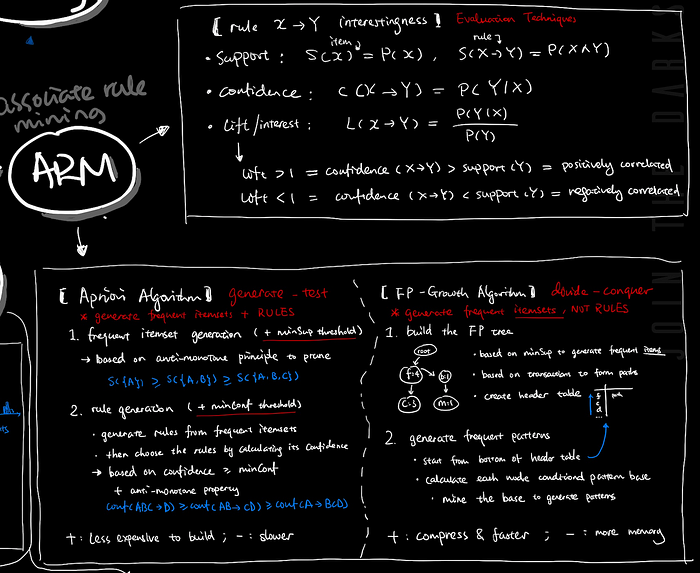 associate rule
mining
ARM
[ rule X → Y interestingness ] Evaluation Techniques
• Support : S(X) = P(X) , S(X→Y) = P(X∧Y)
item
rule
• Confidence : C(X→Y) = P(Y|X)
• Lift/interest : L(X→Y) = P(Y|X) / P(Y)
Lift > 1 = confidence (X→Y) > support (Y) = positively correlated
Lift < 1 = confidence (X→Y) < support (Y) = negatively correlated
JOIN THE DARKS
[ Apriori Algorithm ] generate - test
* generate frequent itemsets + RULES
1. frequent itemset generation ( + minSup threshold)
→ based on anti-monotone principle to prune
S({A}) ≥ S({A,B}) ≥ S({A,B,C})
2. rule generation ( + minConf threshold)
• generate rules from frequent itemsets
• then choose the rules by calculating its confidence
→ based on confidence ≥ minConf
+ anti-monotone property
conf(ABC→D) ≥ conf(AB→CD) ≥ conf(A→BCD)
+ : Less expensive to build ; - : slower
[ FP-Growth Algorithm ] divide - conquer
* generate frequent itemsets, NOT RULES
1. build the FP tree
root
f:4
b:1
c:3
m:1
• based on minSup to generate frequent items
• based on transactions to form paths
• create header table
2. generate frequent patterns
• start from bottom of header table
• calculate each node conditional pattern base
• mine the base to generate patterns
+ : compress & faster ; - : more memory